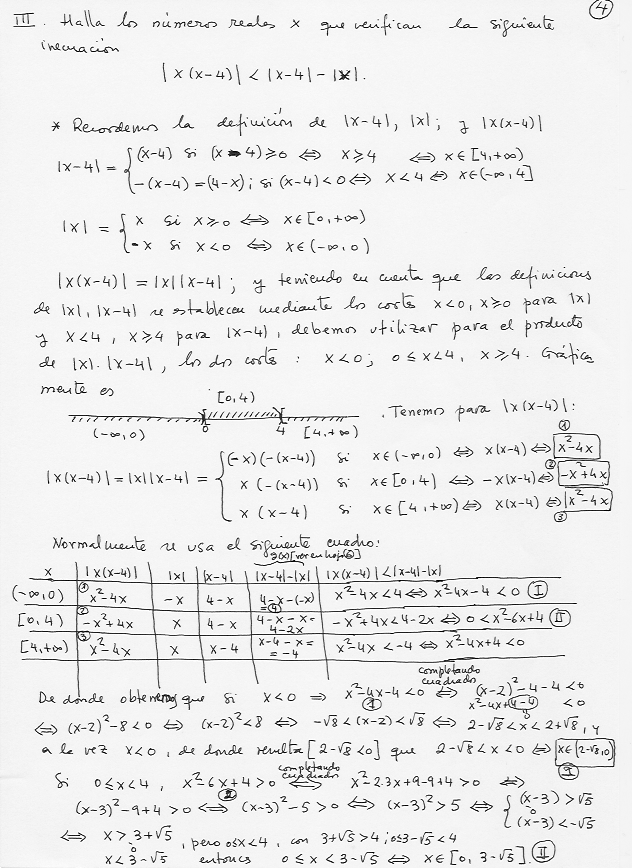 4
III. Halla los números reales x que verifican la siguiente
inecuación
|x(x-4)| < |x-4| - |x|.
* Recordemos la definición de |x-4|, |x|; y |x(x-4)|
|x-4| = { (x-4) si (x-4) ≥ 0 ⟺ x ≥ 4 ⟺ x ∈ [4,+∞)
-(x-4) = (4-x); si (x-4) < 0 ⟺ x < 4 ⟺ x ∈ (-∞, 4]
|x| = { x si x ≥ 0 ⟺ x ∈ [0,+∞)
-x si x < 0 ⟺ x ∈ (-∞, 0)
|x(x-4)| = |x||x-4|; y teniendo en cuenta que las definiciones
de |x|, |x-4| se establecen mediante los cortes x<0, x≥0 para |x|
y x<4, x≥4 para |x-4|, debemos utilizar para el producto
de |x|.|x-4|, los dos cortes: x<0; 0≤x<4, x≥4. Gráfica
mente es
[0,4)
(-∞,0) 0 4 [4,+∞)
. Tenemos para |x(x-4)|:
|x(x-4)| = |x||x-4| = { (-x)(-(x-4)) si x ∈ (-∞,0) ⟺ x(x-4) ⟺ x²-4x ①
x(-(x-4)) si x ∈ [0,4) ⟺ -x(x-4) ⟺ -x²+4x ②
x(x-4) si x ∈ [4,+∞) ⟺ x(x-4) ⟺ x²-4x ③
Normalmente se usa el siguiente cuadro:
x |x(x-4)| |x| |x-4| |x-4|-|x| |x(x-4)| < |x-4|-|x|
(-∞,0) ① x²-4x -x 4-x 4-x-(-x) = 4 x²-4x < 4 ⟺ x²-4x-4 < 0 I
[0,4) ② -x²+4x x 4-x 4-x-x = 4-2x -x²+4x < 4-2x ⟺ 0 < x²-6x+4 II
[4,+∞) ③ x²-4x x x-4 x-4-x = = -4 x²-4x < -4 ⟺ x²-4x+4 < 0
completando
cuadrado
De donde obtenemos que si x<0 ⟹ x²-4x-4<0 ① ⟺ (x-2)²-4-4<0
x²-4x+4-4 <0
⟺ (x-2)²-8<0 ⟺ (x-2)²<8 ⟺ -√8<(x-2)<√8 ⟺ 2-√8<x<2+√8, y
a la vez x<0, de donde resulta [2-√8<0] que 2-√8<x<0 ⟺ x∈(2-√8,0)
completando
cuadrado
Si 0≤x<4, x²-6x+4>0 ⟺ x²-2.3x+9-9+4>0 ⟺
(x-3)²-9+4>0 ⟺ (x-3)²-5>0 ⟺ (x-3)²>5 ⟺ { (x-3)>√5
o
(x-3)<-√5
⟺ x>3+√5, pero 0≤x<4, con 3+√5>4; 0≤3-√5<4
o
x<3-√5 entonces 0≤x<3-√5 ⟺ x∈[0, 3-√5). II